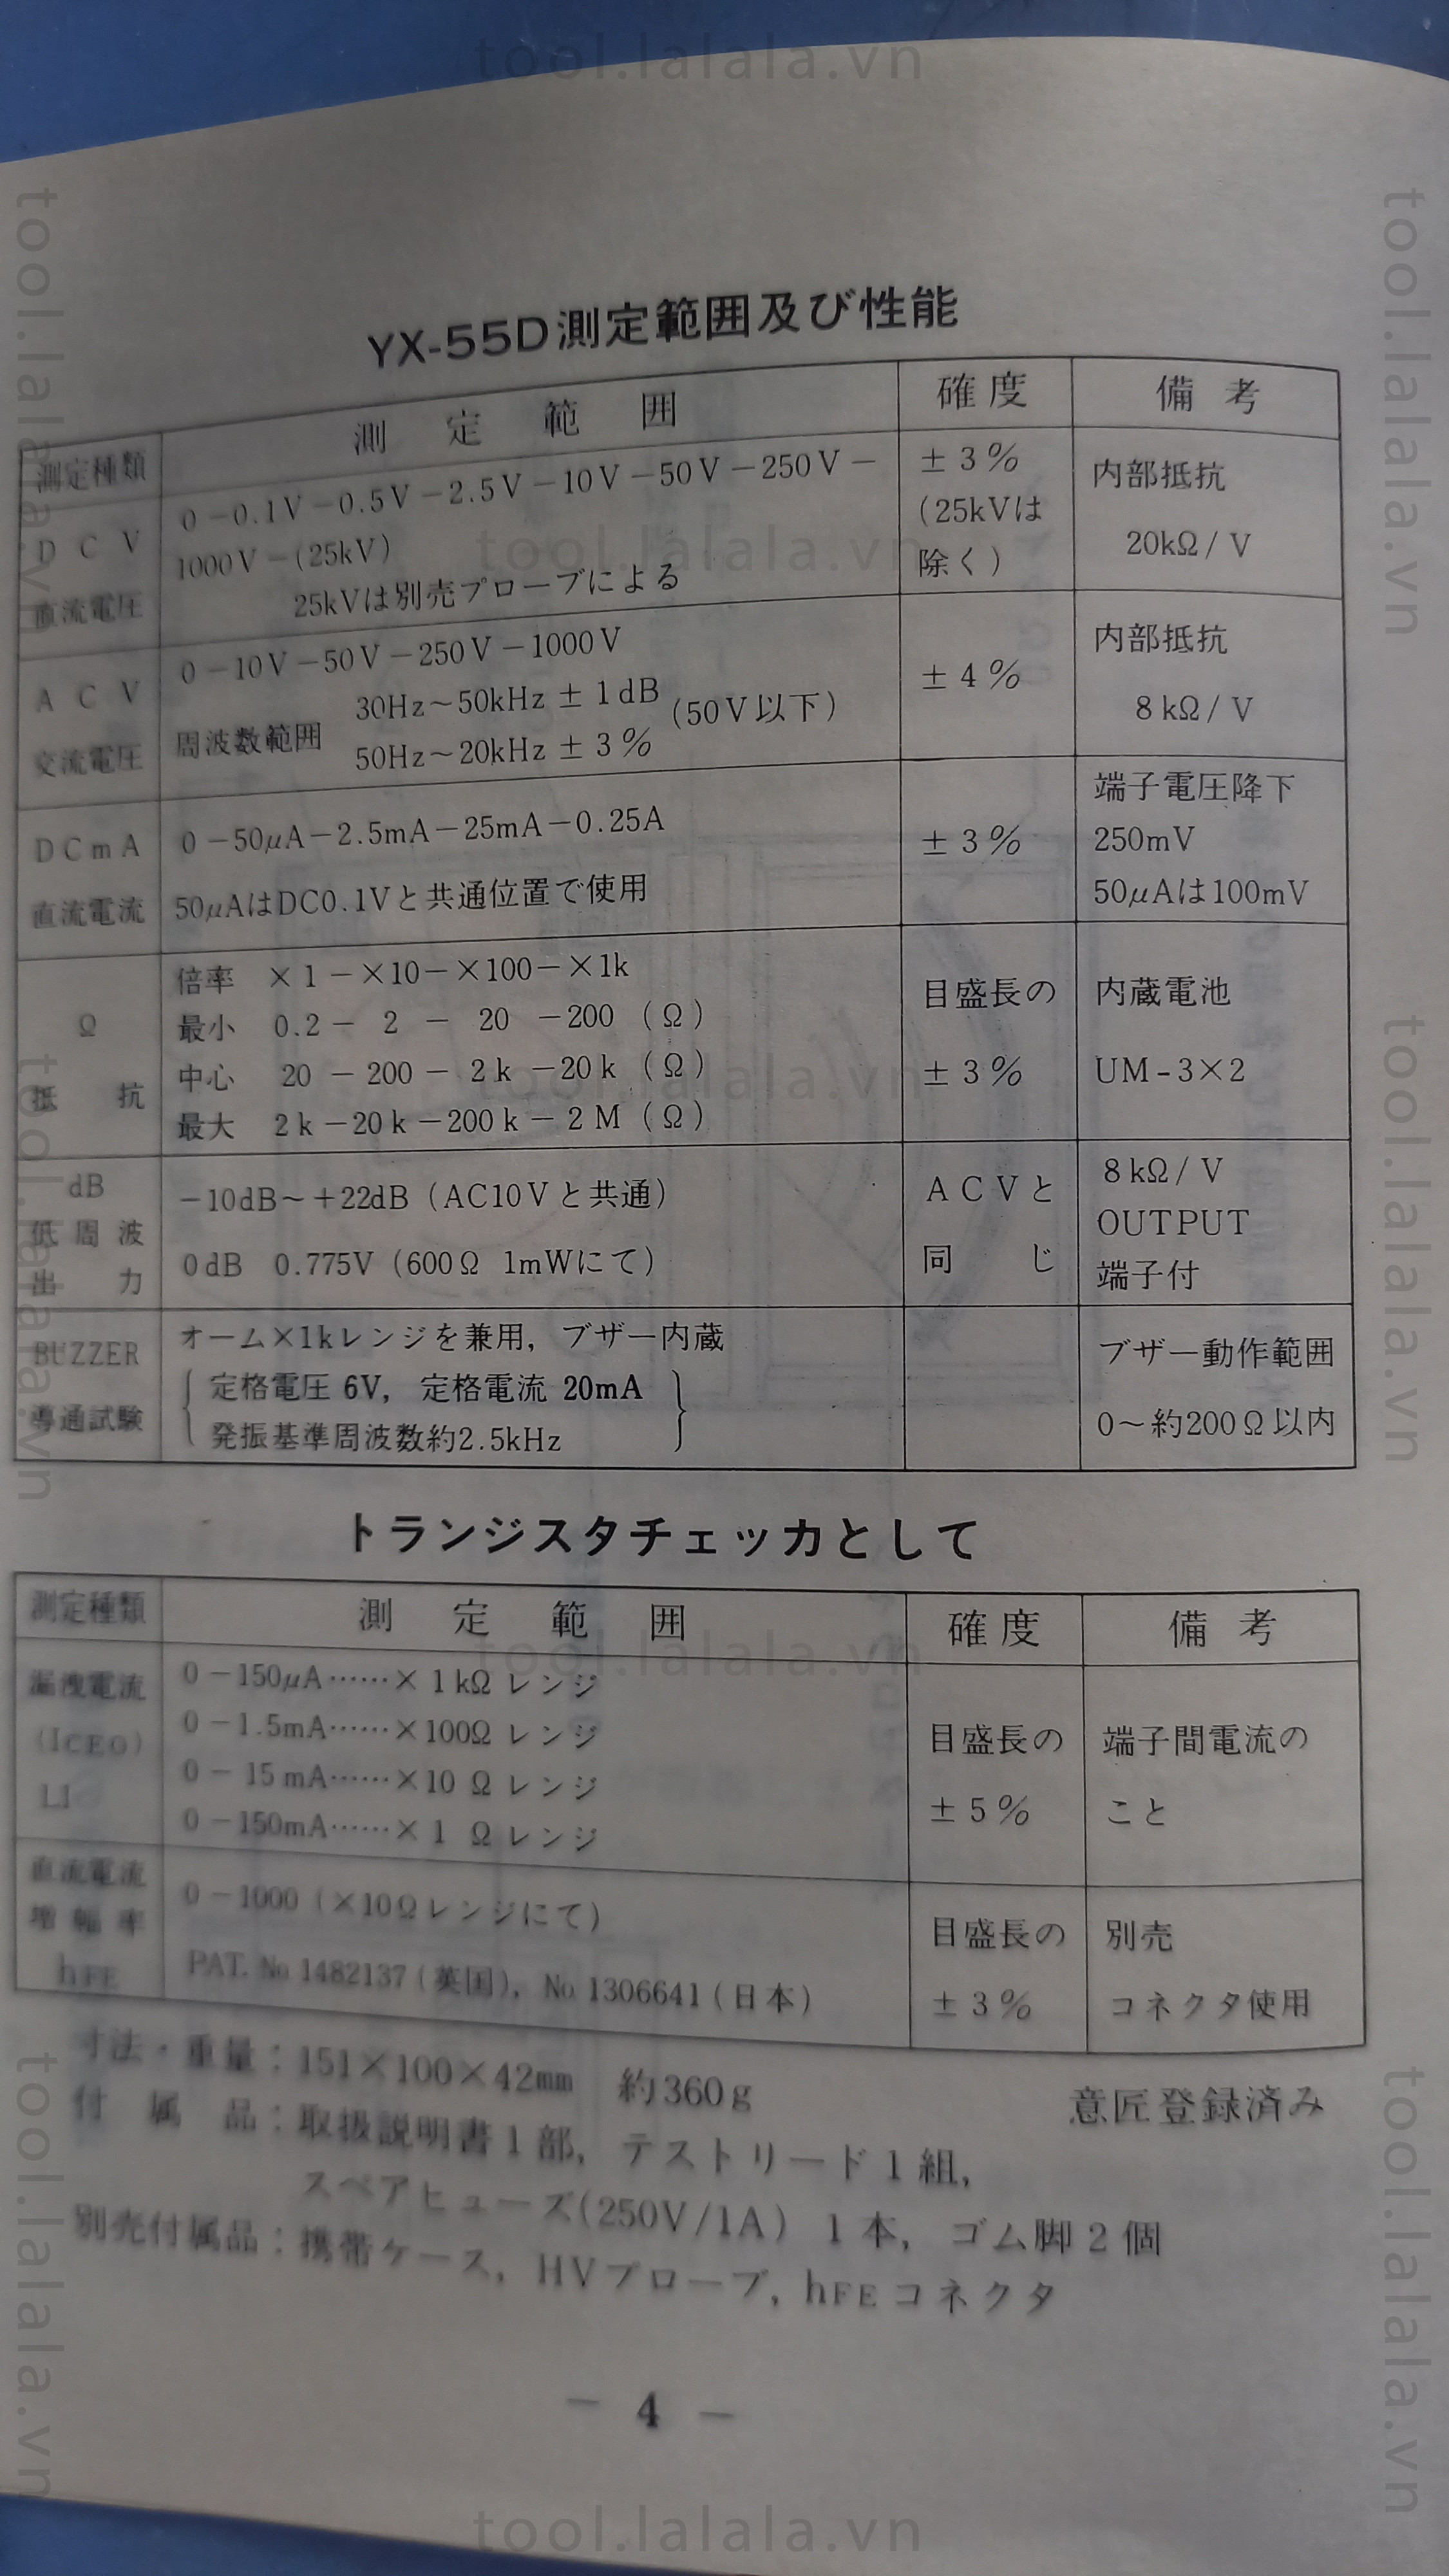 tool.lalala.vn
YX-55D測定範囲及び性能
測定種類 測定範囲 確度 備考
DCV
直流電圧
0－0.1V－0.5V－2.5V－10V－50V－250V－
1000V－(25kV)
25kVは別売プローブによる
±3%
(25kVは
除く)
内部抵抗
20kΩ/V
ACV
交流電圧
0－10V－50V－250V－1000V
周波数範囲 30Hz～50kHz ±1dB
50Hz～20kHz ±3% (50V以下)
±4%
内部抵抗
8kΩ/V
DCmA
直流電流
0－50μA－2.5mA－25mA－0.25A
50μAはDC0.1Vと共通位置で使用
±3%
端子電圧降下
250mV
50μAは100mV
Ω
抵抗
倍率 ×1－×10－×100－×1k
最小 0.2－2－20－200 (Ω)
中心 20－200－2k－20k (Ω)
最大 2k－20k－200k－2M (Ω)
目盛長の
±3%
内蔵電池
UM-3×2
dB
低周波
出力
－10dB～＋22dB (AC10Vと共通)
0dB 0.775V (600Ω 1mWにて)
ACVと
同じ
8kΩ/V
OUTPUT
端子付
BUZZER
導通試験
オーム×1kレンジを兼用，ブザー内蔵
定格電圧 6V，定格電流 20mA
発振基準周波数約2.5kHz
ブザー動作範囲
0～約200Ω以内
トランジスタチェッカとして
測定種類 測定範囲 確度 備考
漏洩電流
(ICEO)
LI
0－150μA……×1kΩ レンジ
0－1.5mA……×100Ω レンジ
0－15mA……×10Ω レンジ
0－150mA……×1Ω レンジ
目盛長の
±5%
端子間電流の
こと
直流電流
増幅率
hFE
0－1000 (×10Ωレンジにて)
PAT. No 1482137 (英国), No 1306641 (日本)
目盛長の
±3%
別売
コネクタ使用
寸法・重量：151×100×42mm 約360g
意匠登録済み
付属品：取扱説明書1部，テストリード1組，
スペアヒューズ(250V/1A) 1本，ゴム脚2個
別売付属品：携帯ケース，HVプローブ，hFEコネクタ
－ 4 －
tool.lalala.vn